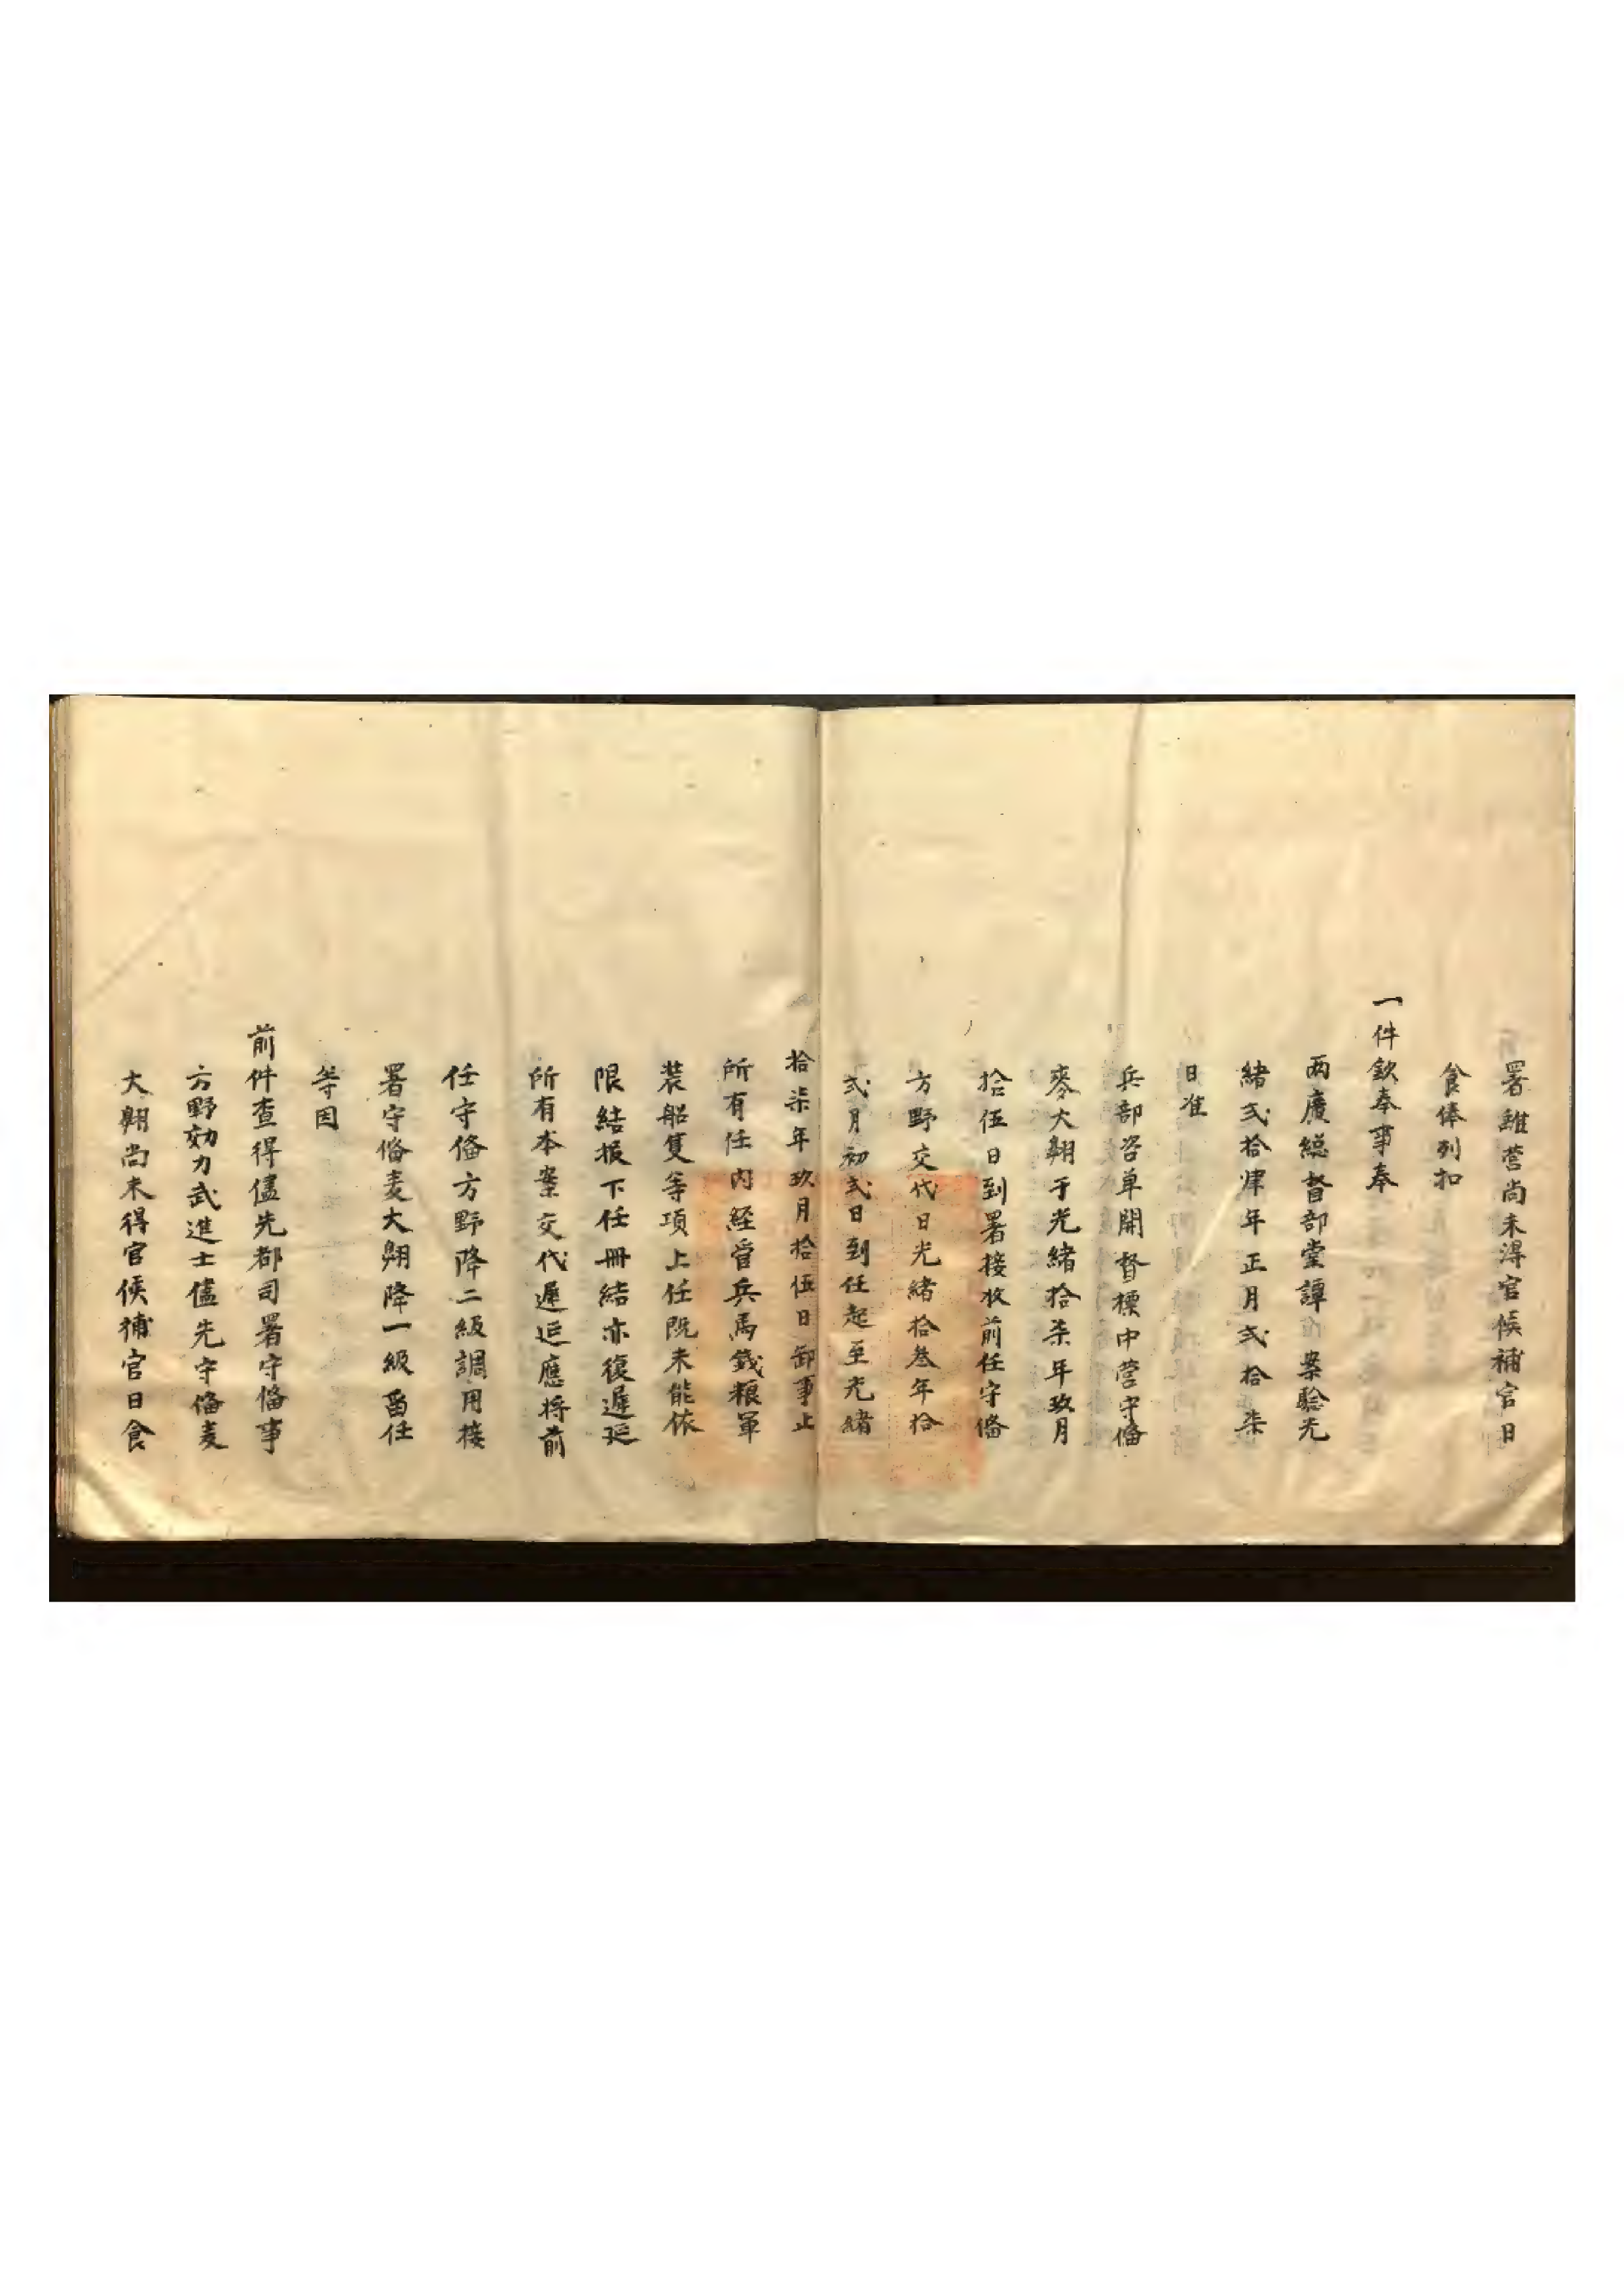 署離營尚未得官候補官日
食俸列扣
一件欽奉事奉
兩廣総督部堂譚 案驗光
緒弍拾肆年正月弍拾柒
日准
兵部咨单開督標中營守俻
麥大翙于光緒拾柒年玖月
拾伍日到署接收前任守俻
方野交代日光緒拾叁年拾
弍月初弍日到任起至光緒
拾柒年玖月拾伍日卸事止
所有任内経管兵馬錢粮軍
裝船隻等項上任既未能依
限結报下任冊結亦復遲延
所有本案交代遲延應将前
任守俻方野降二級調用接
署守俻麦大翙降一級畱任
等因
前件查得儘先都司署守俻事
方野効力武進士儘先守俻麦
大翙尚未得官候補官日食